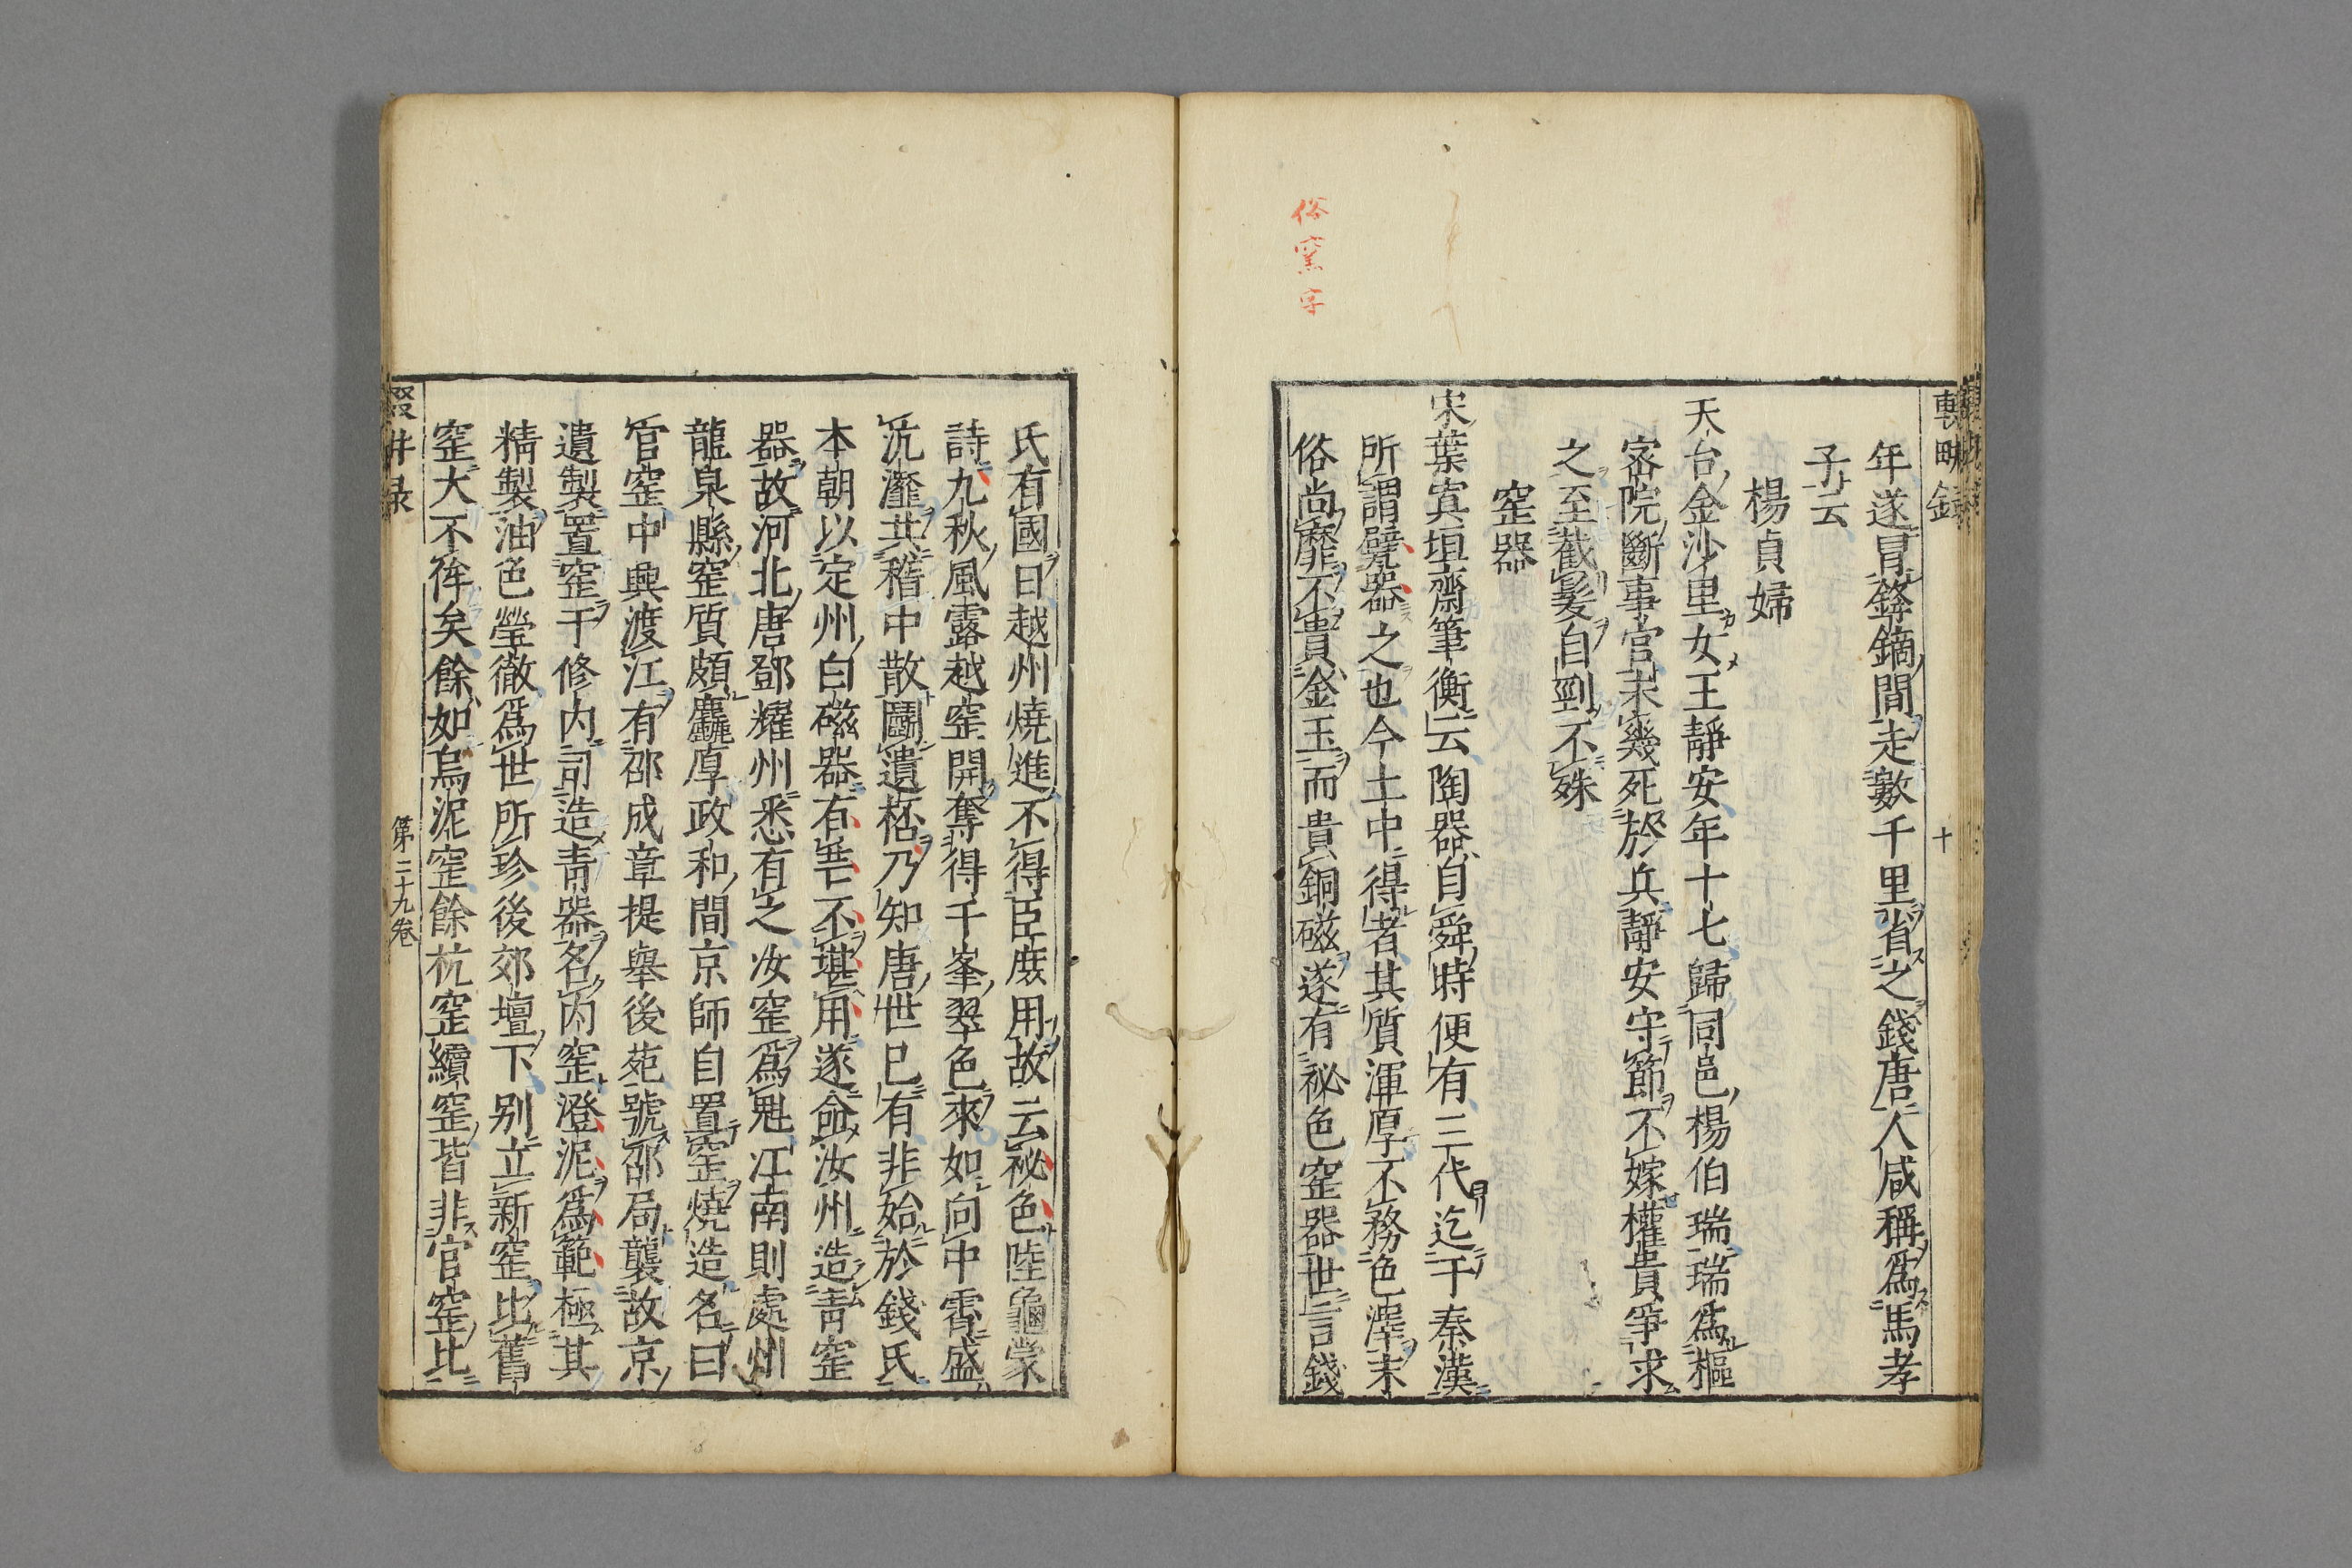 俗窯字
年遂冒鋒鏑間走數千里省之錢唐人咸稱爲馬孝
子云
楊貞婦
天台金沙里女王靜安年十七歸同邑楊伯瑞瑞爲樞
宻院斷事官未幾死於兵靜安守節不嫁權貴爭求
之至截髮自剄不殊
窑器
宋葉寘垣齋筆衡云陶器自舜時便有三代迄于秦漢
所謂甓器之也今土中得者其質渾厚不務色澤末
俗尚靡不貴金玉而貴銅磁遂有祕色窑器世言錢
氏有國日越州燒進不得臣庶用故云祕色陸龜蒙
詩九秋風露越窑開奪得千峯翠色來如向中霄盛
沆瀣共稽中散鬬遺桮乃知唐世已有非始於錢氏
本朝以定州白磁器有芒不堪用遂命汝州造青窑
器故河北唐鄧耀州悉有之汝窑爲魁江南則處州
龍泉縣窑質頗麤厚政和間京師自置窑燒造名曰
官窑中興渡江有邵成章提舉後苑號邵局襲故京
遺製置窑于修内司造青器名内窑澄泥爲範極其
精製油色瑩徹爲世所珍後郊壇下别立新窑比舊
窑大不侔矣餘如烏泥窑餘杭窑續窑皆非官窑比
第二十九卷